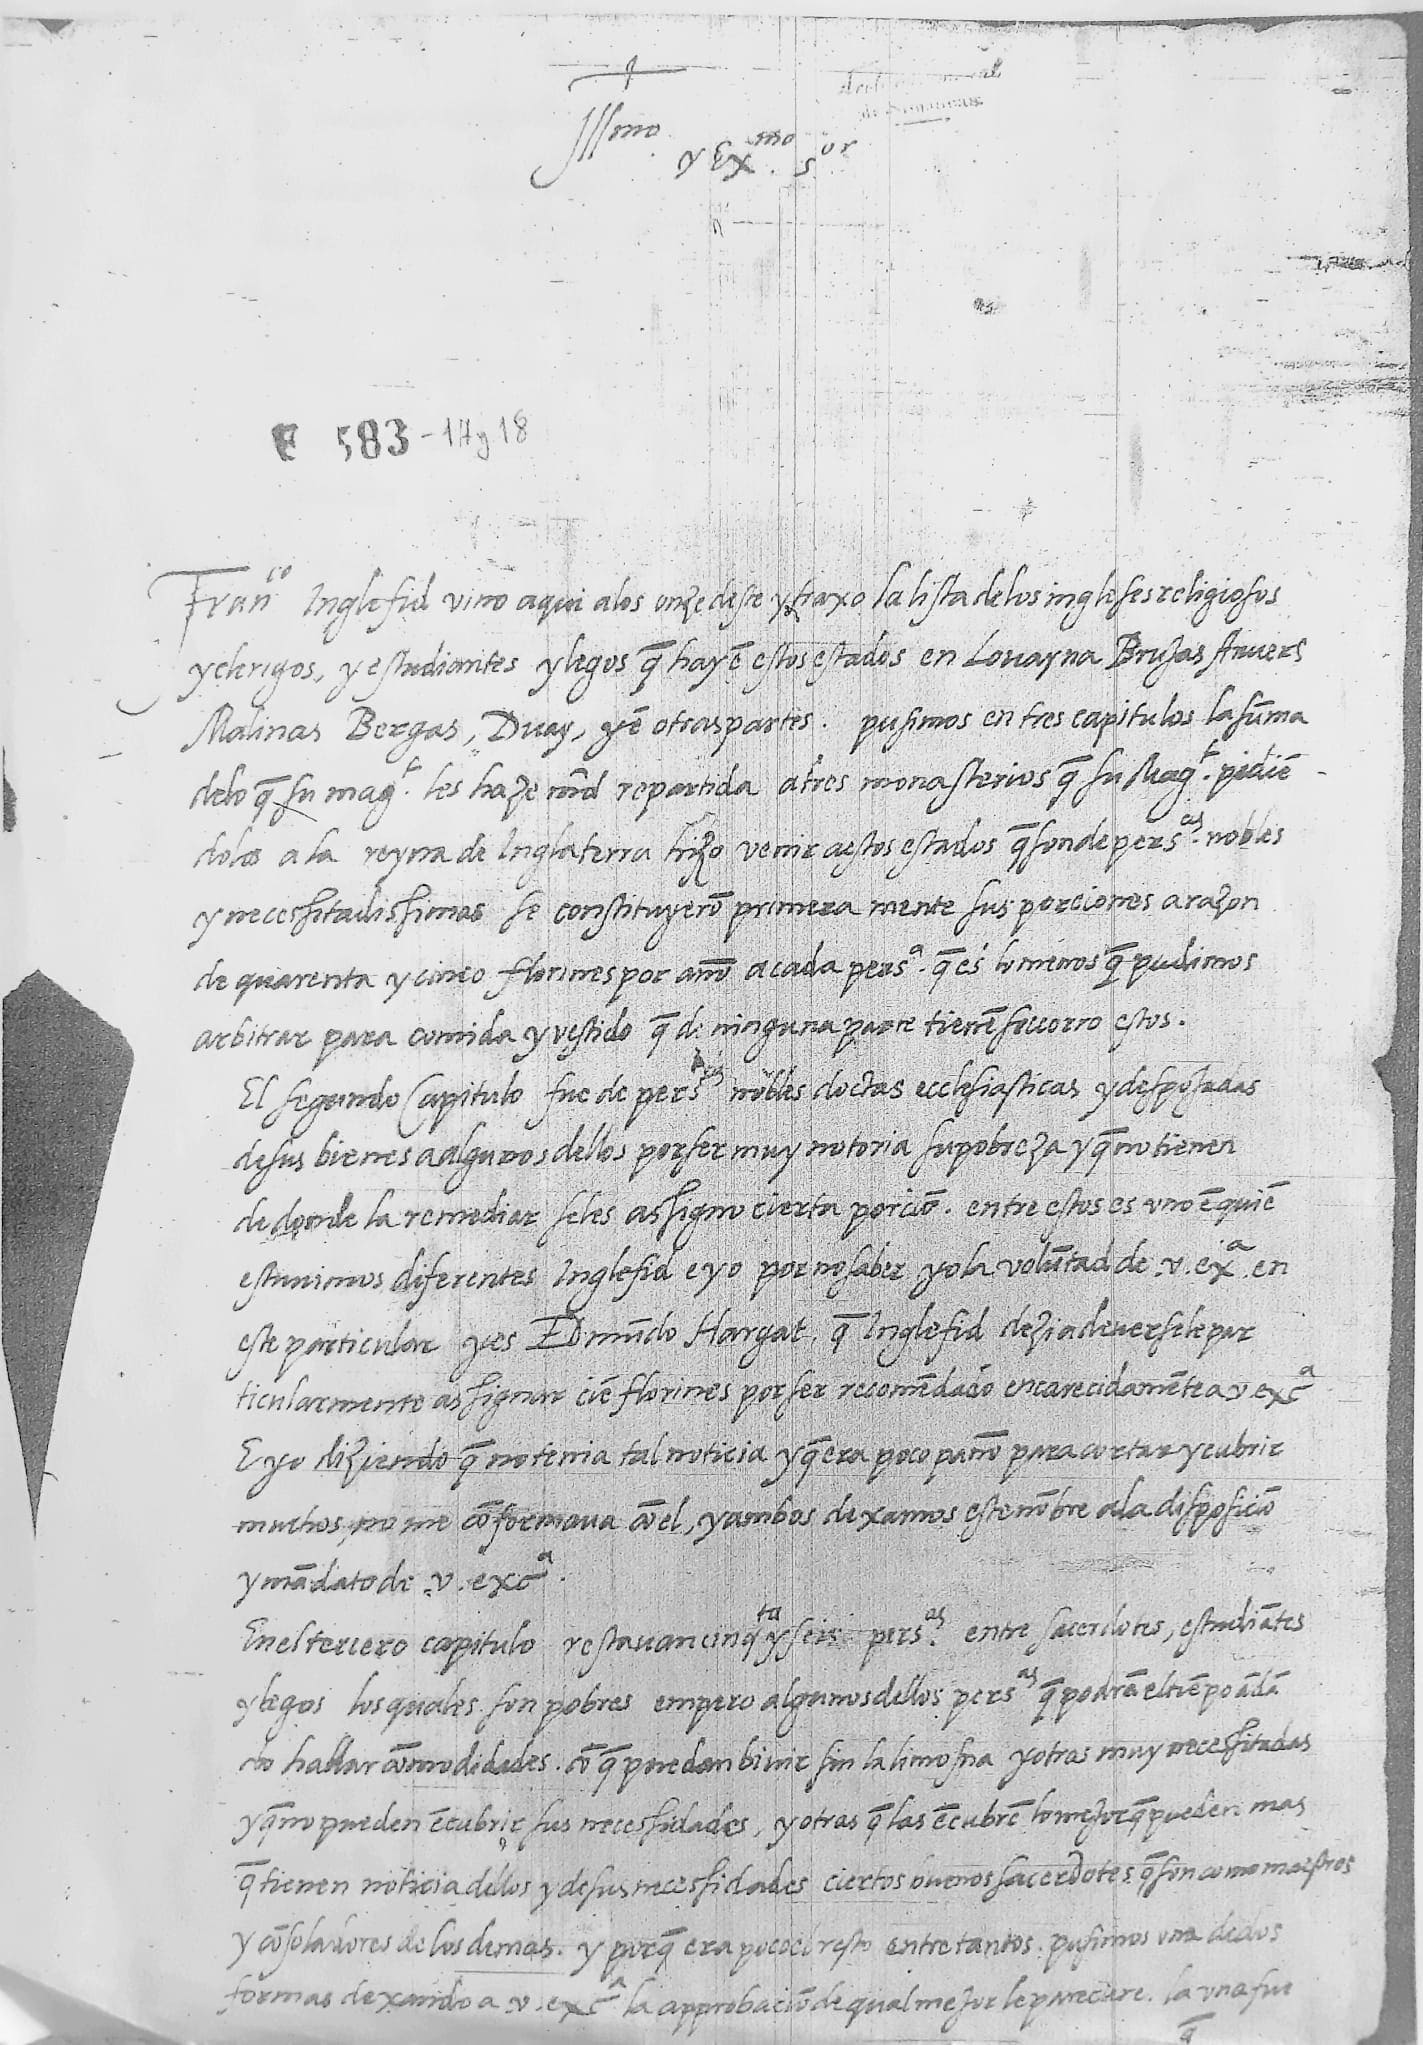 Illmo y Exmo. sor
E 583 - 17 y 18
Franco Inglefid vino aqui a los onze deste y traxo la lista de los ingleses religiosos
y clerigos, y estudiantes y legos q̄ hay ē estos estados en Lovayna Brujas Anvers
Malinas Bergas, Duay, y ē otras partes. pusimos en tres capitulos la sūma
de lo q̄ su magt. les haze mrd repartida a tres monasterios q̄ su Magt. pidiē
dolos a la reyna de Inglaterra hizo venir a estos estados q̄ son de persas. nobles
y necessitadissimas se constituyerō primera mente sus porciones a razon
de quarenta y cinco florines por anō a cada persa. q̄ es lo menos q̄ pudimos
arbitrar para comida y vestido q̄ de ninguna parte tienē soccorro estos.
El segundo Capitulo fue de persas nobles doctas ecclesiasticas y despojadas
de sus bienes a algunos dellos por ser muy notoria su pobreza y q̄ no tienen
de donde la remediar se les assigno cierta porciō. entre estos es uno ē quiē
estuvimos diferentes Inglefid e yo por no saber yo la volūtad de .v. exa. en
este particular y es Edmūdo Hargat. q̄ Inglefid dezia deversele par
ticularmente assignar ciē florines por ser recomēdado encarecidamēte a v. exca
E yo diziendo q̄ no tenia tal noticia y q̄ era poco panō para cortar y cubrir
muchos, no me cōformava cō el, y ambos dexamos este nōbre a la disposiciō
y mādato de .v. exca.
En el tercero capitulo restavan cinqta y seis persas. entre sacerdotes, estudiātes
y legos los quales son pobres empero algunos dellos persas q̄ podrā el tiēpo ādā
do hallar cōmodidades. cō q̄ puedan bivir sin la limosna y otras muy necessitadas
y q̄ no pueden ēcubrir sus necessidades, y otras q̄ las ēcubrē lo mejor q̄ pueden mas
q̄ tienen noticia dellos y de sus necessidades ciertos buenos sacerdotes q̄ son como maestros
y cōsoladores de los demas. y porq̄ era poco el resto entre tantos. pusimos una de dos
formas dexando a .v. exca la approbaciō de qual mejor le pareciere. la una fue
q̄